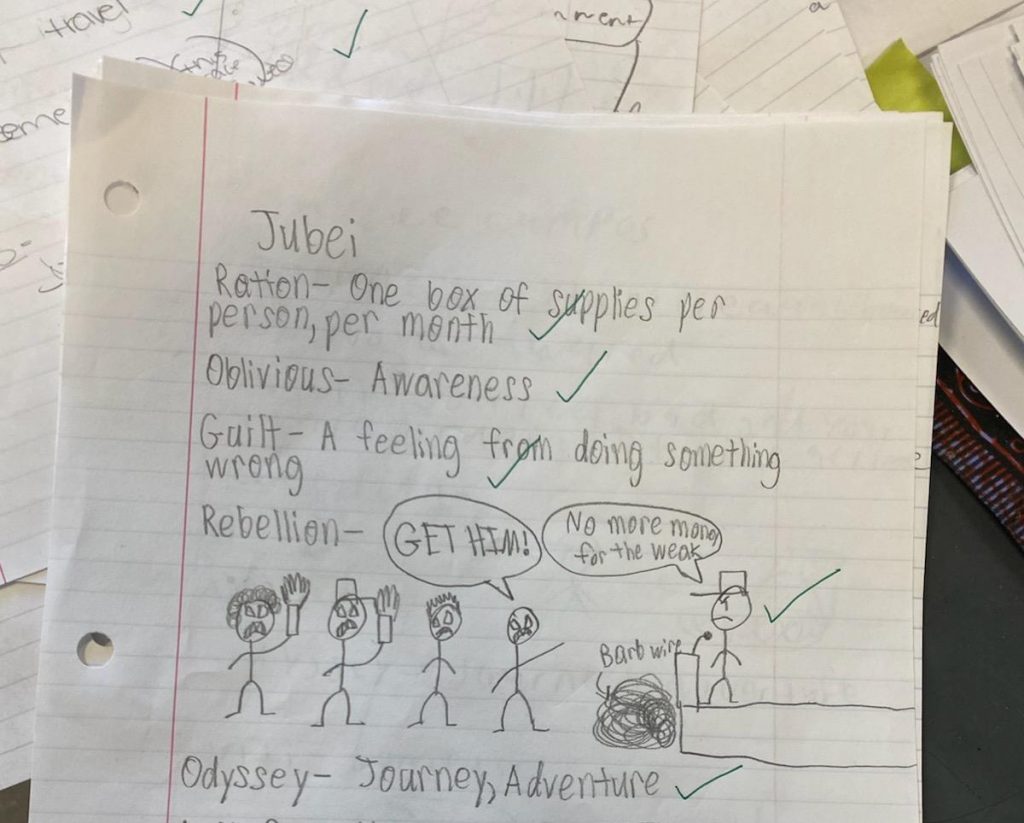 travel
Jubei
Ration- One box of supplies per
person, per month
Oblivious- Awareness
Guilt- A feeling from doing something
wrong
Rebellion-
GET HIM!
No more money
for the weak
Barb wire
Odyssey- Journey, Adventure